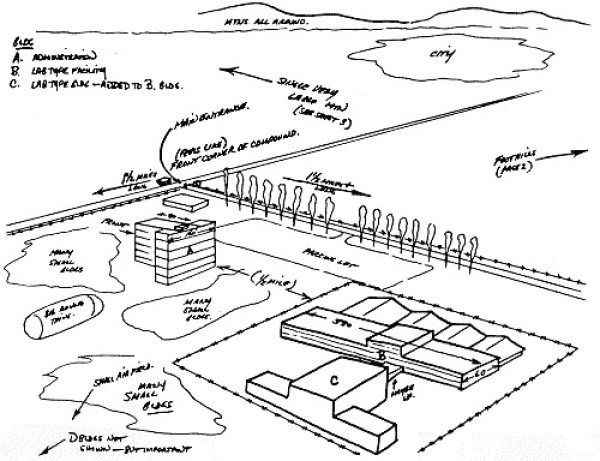 MTNS ALL AROUND.
CITY
BLDG
A. ADMINISTRATION
B. LAB TYPE FACILITY
C. LAB TYPE BLDG — ADDED TO B. BLDG.
SINGLE VERY
LARGE MTN
(SEE SHEET 3)
MAIN ENTRANCE.
(FEELS LIKE)
FRONT CORNER OF COMPOUND.
FOOTHILLS
(PAGE 2)
1½ MILES
LONG
1½ MILES +
LONG
FRONT
A
MANY
SMALL
BLDGS
PARKING LOT
(½ MILE)
BIG ROUND
THING.
MANY
SMALL
BLDGS.
B
60
C
SMALL AIR FIELD.
MANY
SMALL
BLDGS
D BLDGS NOT
SHOWN — BUT IMPORTANT